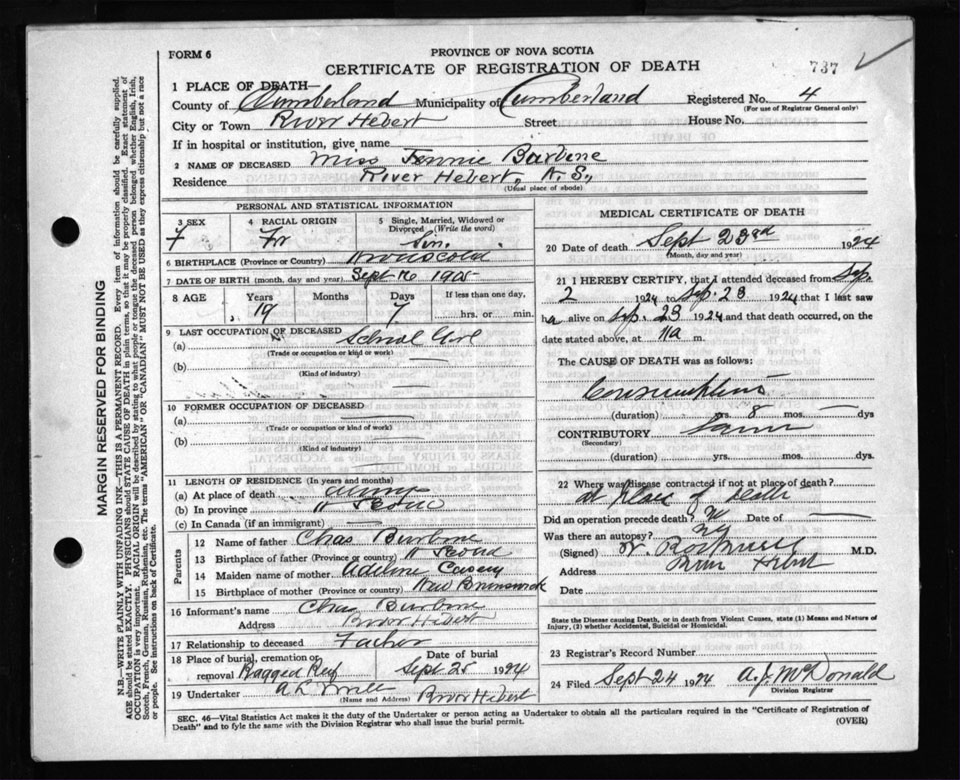 FORM 6
PROVINCE OF NOVA SCOTIA
CERTIFICATE OF REGISTRATION OF DEATH
737
1 PLACE OF DEATH—
County of Cumberland Municipality of Cumberland Registered No. 4
(For use of Registrar General only)
City or Town River Hebert Street House No.
If in hospital or institution, give name
2 NAME OF DECEASED Miss Jennie Barbine
Residence River Hebert, N.S.,
(Usual place of abode)
MARGIN RESERVED FOR BINDING
N.B.—WRITE PLAINLY WITH UNFADING INK—THIS IS A PERMANENT RECORD. Every item of information should be carefully supplied.
AGE should be stated EXACTLY. PHYSICIANS should STATE CAUSE OF DEATH in plain terms, so that it may be properly classified. Exact statement of
OCCUPATION is very important. RACIAL ORIGIN will be described by stating to what people or tongue the deceased person belonged whether English, Irish,
Scotch, French, German, Russian, Ruthenian, etc. The terms "AMERICAN" or "CANADIAN" MUST NOT BE USED as they express citizenship but not a race
or people. See instructions on back of Certificate.
PERSONAL AND STATISTICAL INFORMATION
3 SEX
F
4 RACIAL ORIGIN
Fr
5 Single, Married, Widowed or
Divorced (Write the word)
Sin.
6 BIRTHPLACE (Province or Country)
7 DATE OF BIRTH (month, day and year) Sept 16 1905
8 AGE Years Months Days If less than one day,
19 7 hrs. or min.
9 LAST OCCUPATION OF DECEASED
(a) School Girl
(Trade or occupation or kind or work)
(b) —
(Kind of industry)
10 FORMER OCCUPATION OF DECEASED
(a) —
(Trade or occupation or kind of work)
(b) —
(Kind of industry)
11 LENGTH OF RESIDENCE (In years and months)
(a) At place of death always
(b) In province "
(c) In Canada (if an immigrant) —
Parents
12 Name of father Chas Burbine
13 Birthplace of father (Province or country) N Scotia
14 Maiden name of mother Adeline Casey
15 Birthplace of mother (Province or country) New Brunswick
16 Informant's name Chas Burbine
Address River Hebert
17 Relationship to deceased Father
18 Place of burial, cremation or removal Ragged Reef Date of burial Sept 25 1924
19 Undertaker River Hebert
(Name and Address)
MEDICAL CERTIFICATE OF DEATH
20 Date of death Sept 23rd 1924
(Month, day and year)
21 I HEREBY CERTIFY, that I attended deceased from Sep.
2 1924 to Sep. 23 1924 that I last saw
h alive on Sep. 23 1924 and that death occurred, on the
date stated above, at 11a m.
The CAUSE OF DEATH was as follows:
Consumption
(duration) yrs. 8 mos. — dys
CONTRIBUTORY Same
(Secondary)
(duration) yrs. mos. dys.
22 Where was disease contracted if not at place of death?
at place of death
Did an operation precede death? No Date of —
Was there an autopsy? No
(Signed) M.D.
Address River Hebert
Date
State the Disease causing Death, or in death from Violent Causes, state (1) Means and Nature of
Injury, (2) whether Accidental, Suicidal or Homicidal.
23 Registrar's Record Number
24 Filed Sept 24 1924 A. J. McDonald
Division Registrar
SEC. 46—Vital Statistics Act makes it the duty of the Undertaker or person acting as Undertaker to obtain all the particulars required in the "Certificate of Registration of
Death" and to fyle the same with the Division Registrar who shall issue the burial permit.
(OVER)